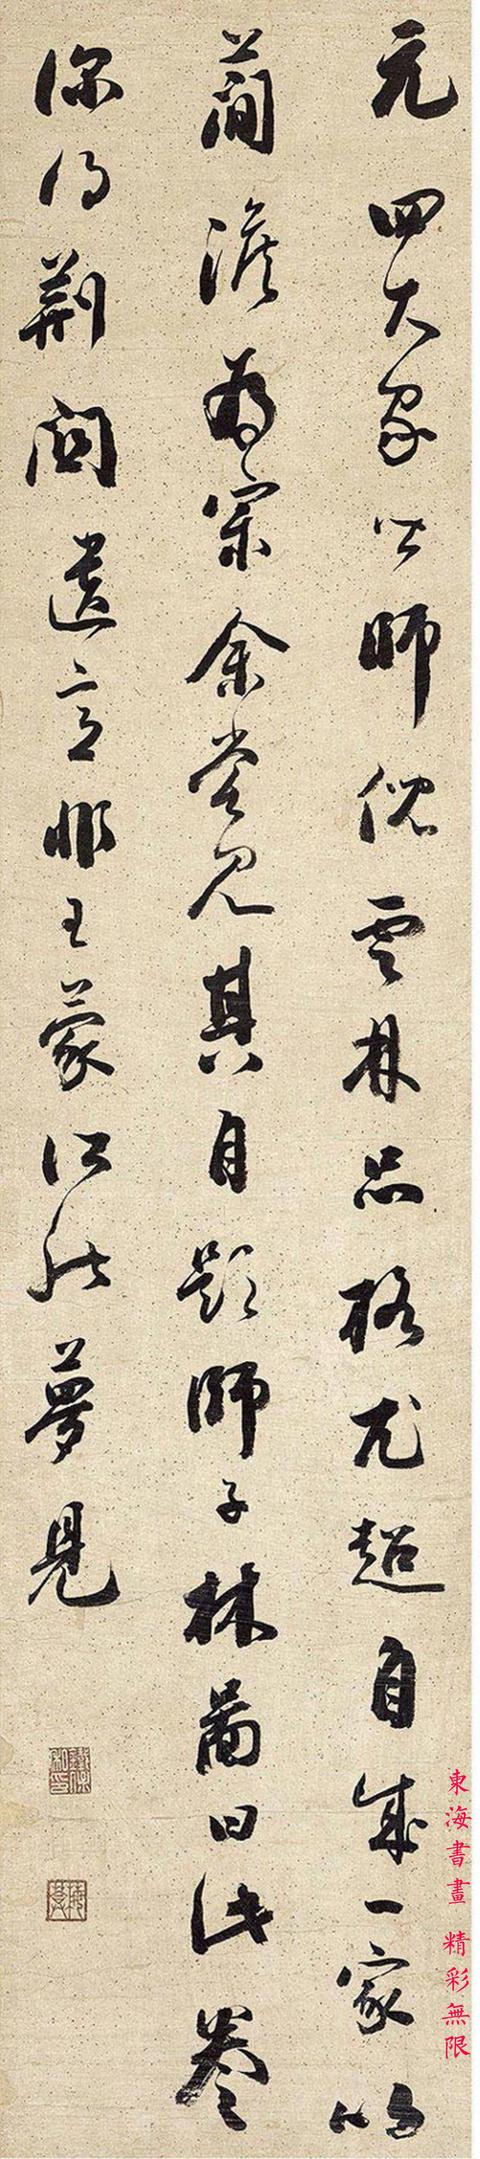 元四大家皆師倪雲林品格尤超自成一家以
簡澹為宗余嘗見其自題師子林圖曰此卷
深得荊關遺意非王蒙所能夢見
東海書畫 精彩無限